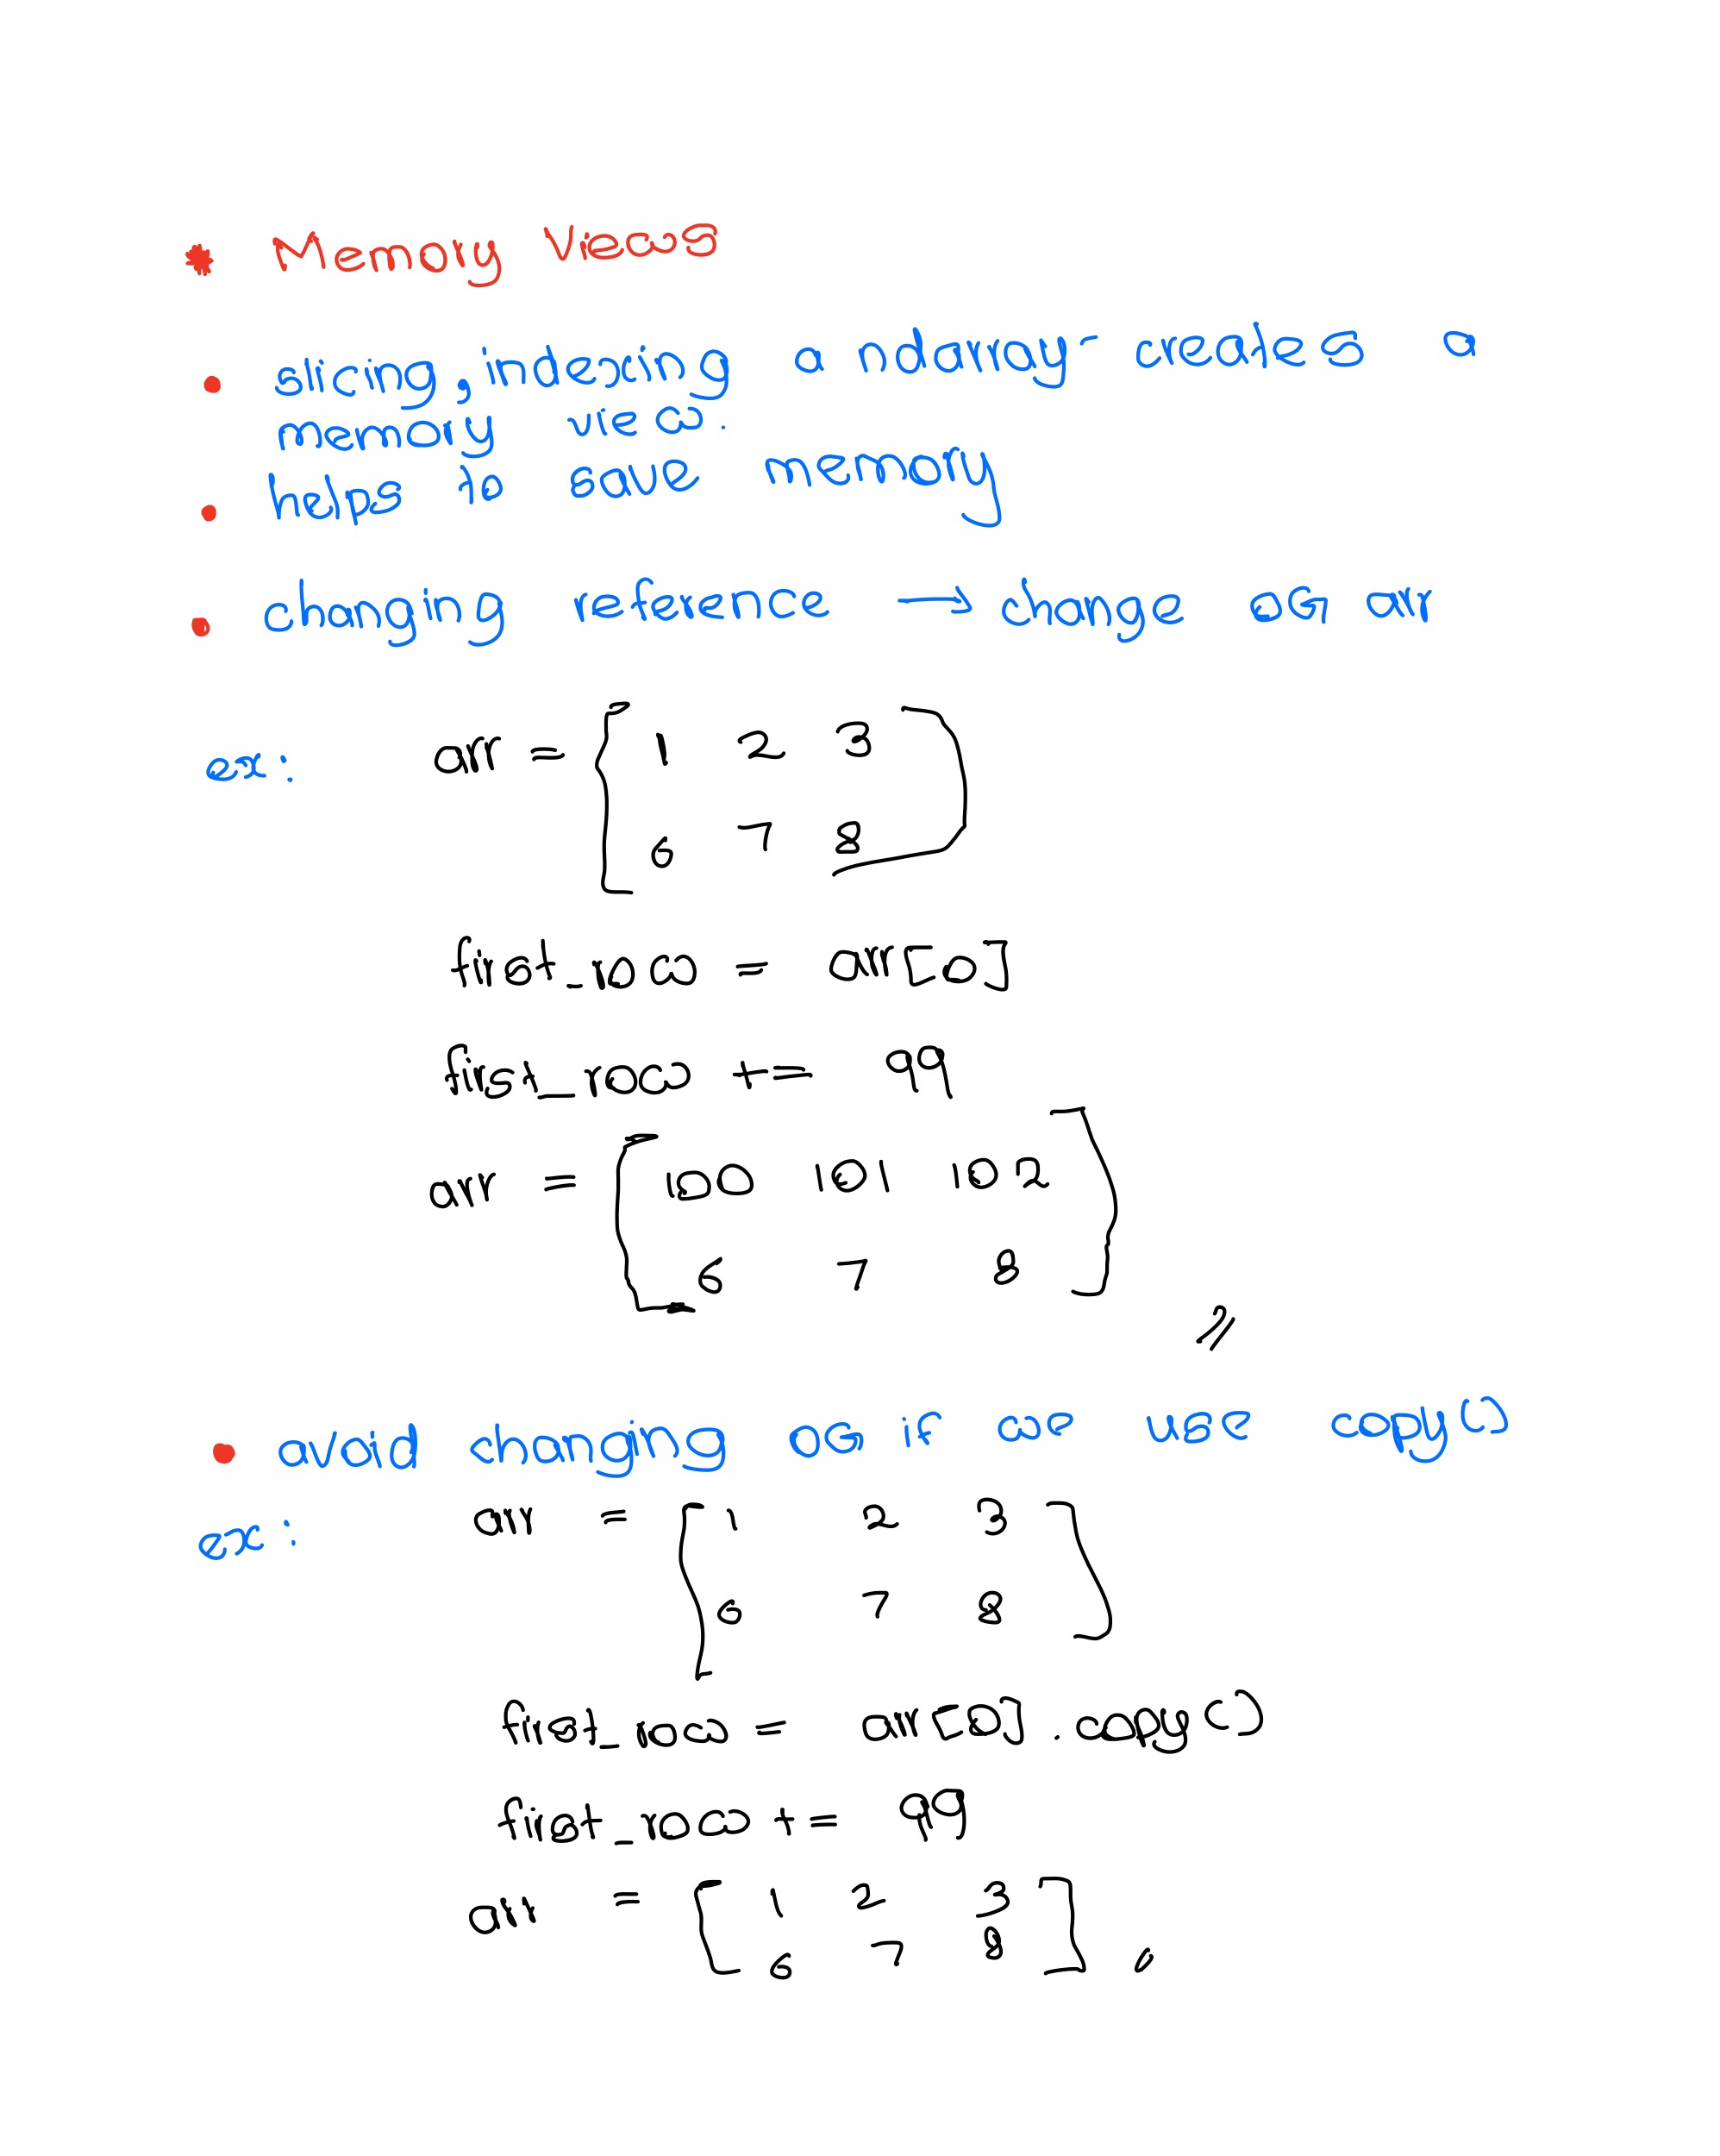 * Memory Views
• slicing, indexing a ndarray creates a
memory view.
• helps to save memory
• changing reference → change OG arr
ex: arr = [ 1 2 3
6 7 8 ]
first_row = arr[0]
first_row += 99
arr = [ 100 101 102
6 7 8 ] //
• avoid changing OG if we use copy()
ex: arr = [ 1 2 3
6 7 8 ]
first_row = arr[0].copy()
first_row += 99
arr = [ 1 2 3
6 7 8 ]